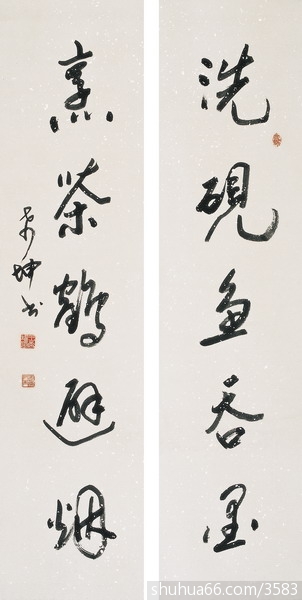 洗硯魚吞墨
烹茶鶴避烟
坤书
shuhua66.com/3583